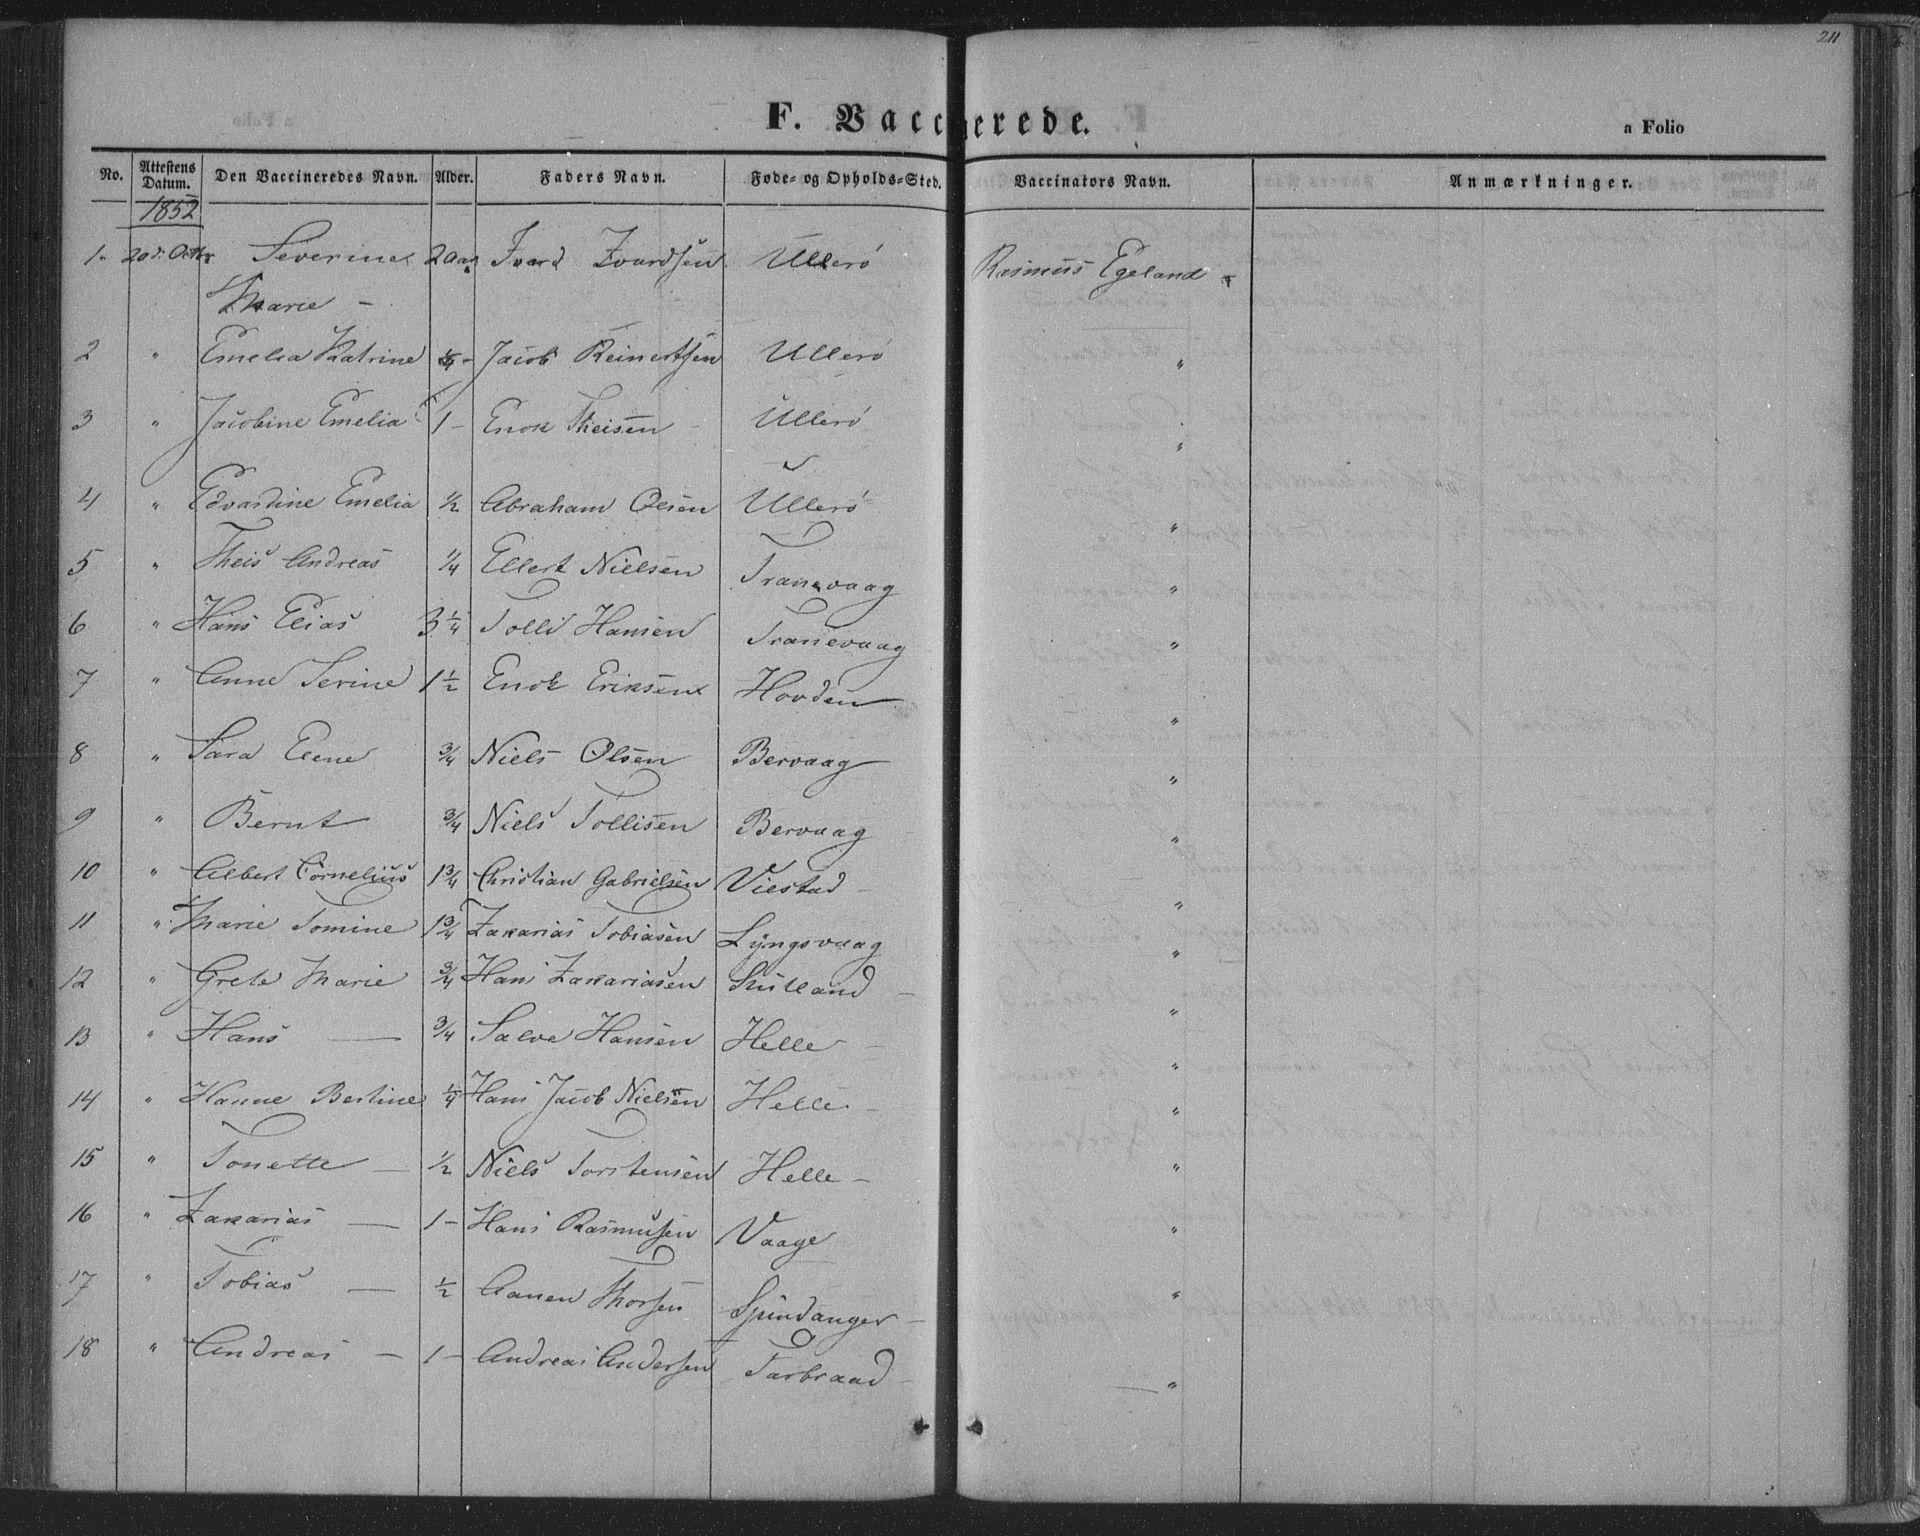 211
F. Vaccinerede.
a Folio
No. Attestens Datum. Den Vaccineredes Navn. Alder. Faders Navn. Føde- og Opholds-Sted. Vaccinators Navn. Anmærkninger.
1852
1. 20de Octbr Severine 2 Aar Ivard Ivardsen Ullerø Rasmus Egeland
Marie –
2 " Emelia Katrine ¼ – Jacob Reinertsen Ullerø "
3 " Jacobine Emelia 1 – Enok Theisen – Ullerø "
4 " Edvardine Emelia ½ Abraham Olsen Ullerø "
5 " Theis Andreas ¼ Ellert Nielsen Tranevaag "
6 " Hans Elias 3¼ Tolli Hansen Tranevaag "
7 " Anne Serine 1½ Enok Eriksen Hovden "
8 " Sara Elene ¾ Niels Olsen Bervaag "
9 " Bernt ¾ Niels Tollisen Bervaag "
10 " Albert Cornelius 1¾ Christian Gabrielsen Viestad – "
11 " Marie Tomine 1¾ Zakarias Tobiasen Lyngsvaag "
12 " Grete Marie ¾ Hans Zakariasen –
13 " Hans — ¾ Salve Hansen Helle – "
14 " Hanne Bertine ¼ Hans Jacob Nielsen Helle – "
15 " Tonette — ½ Niels Torstensen Helle – "
16 " Zakarias — 1 – Hans Rasmusen Vaage "
17 " Tobias — ½ Aanen Thorsen Spindanger – "
18 " Andreas — 1 – Andreas Andersen Farbraad – "